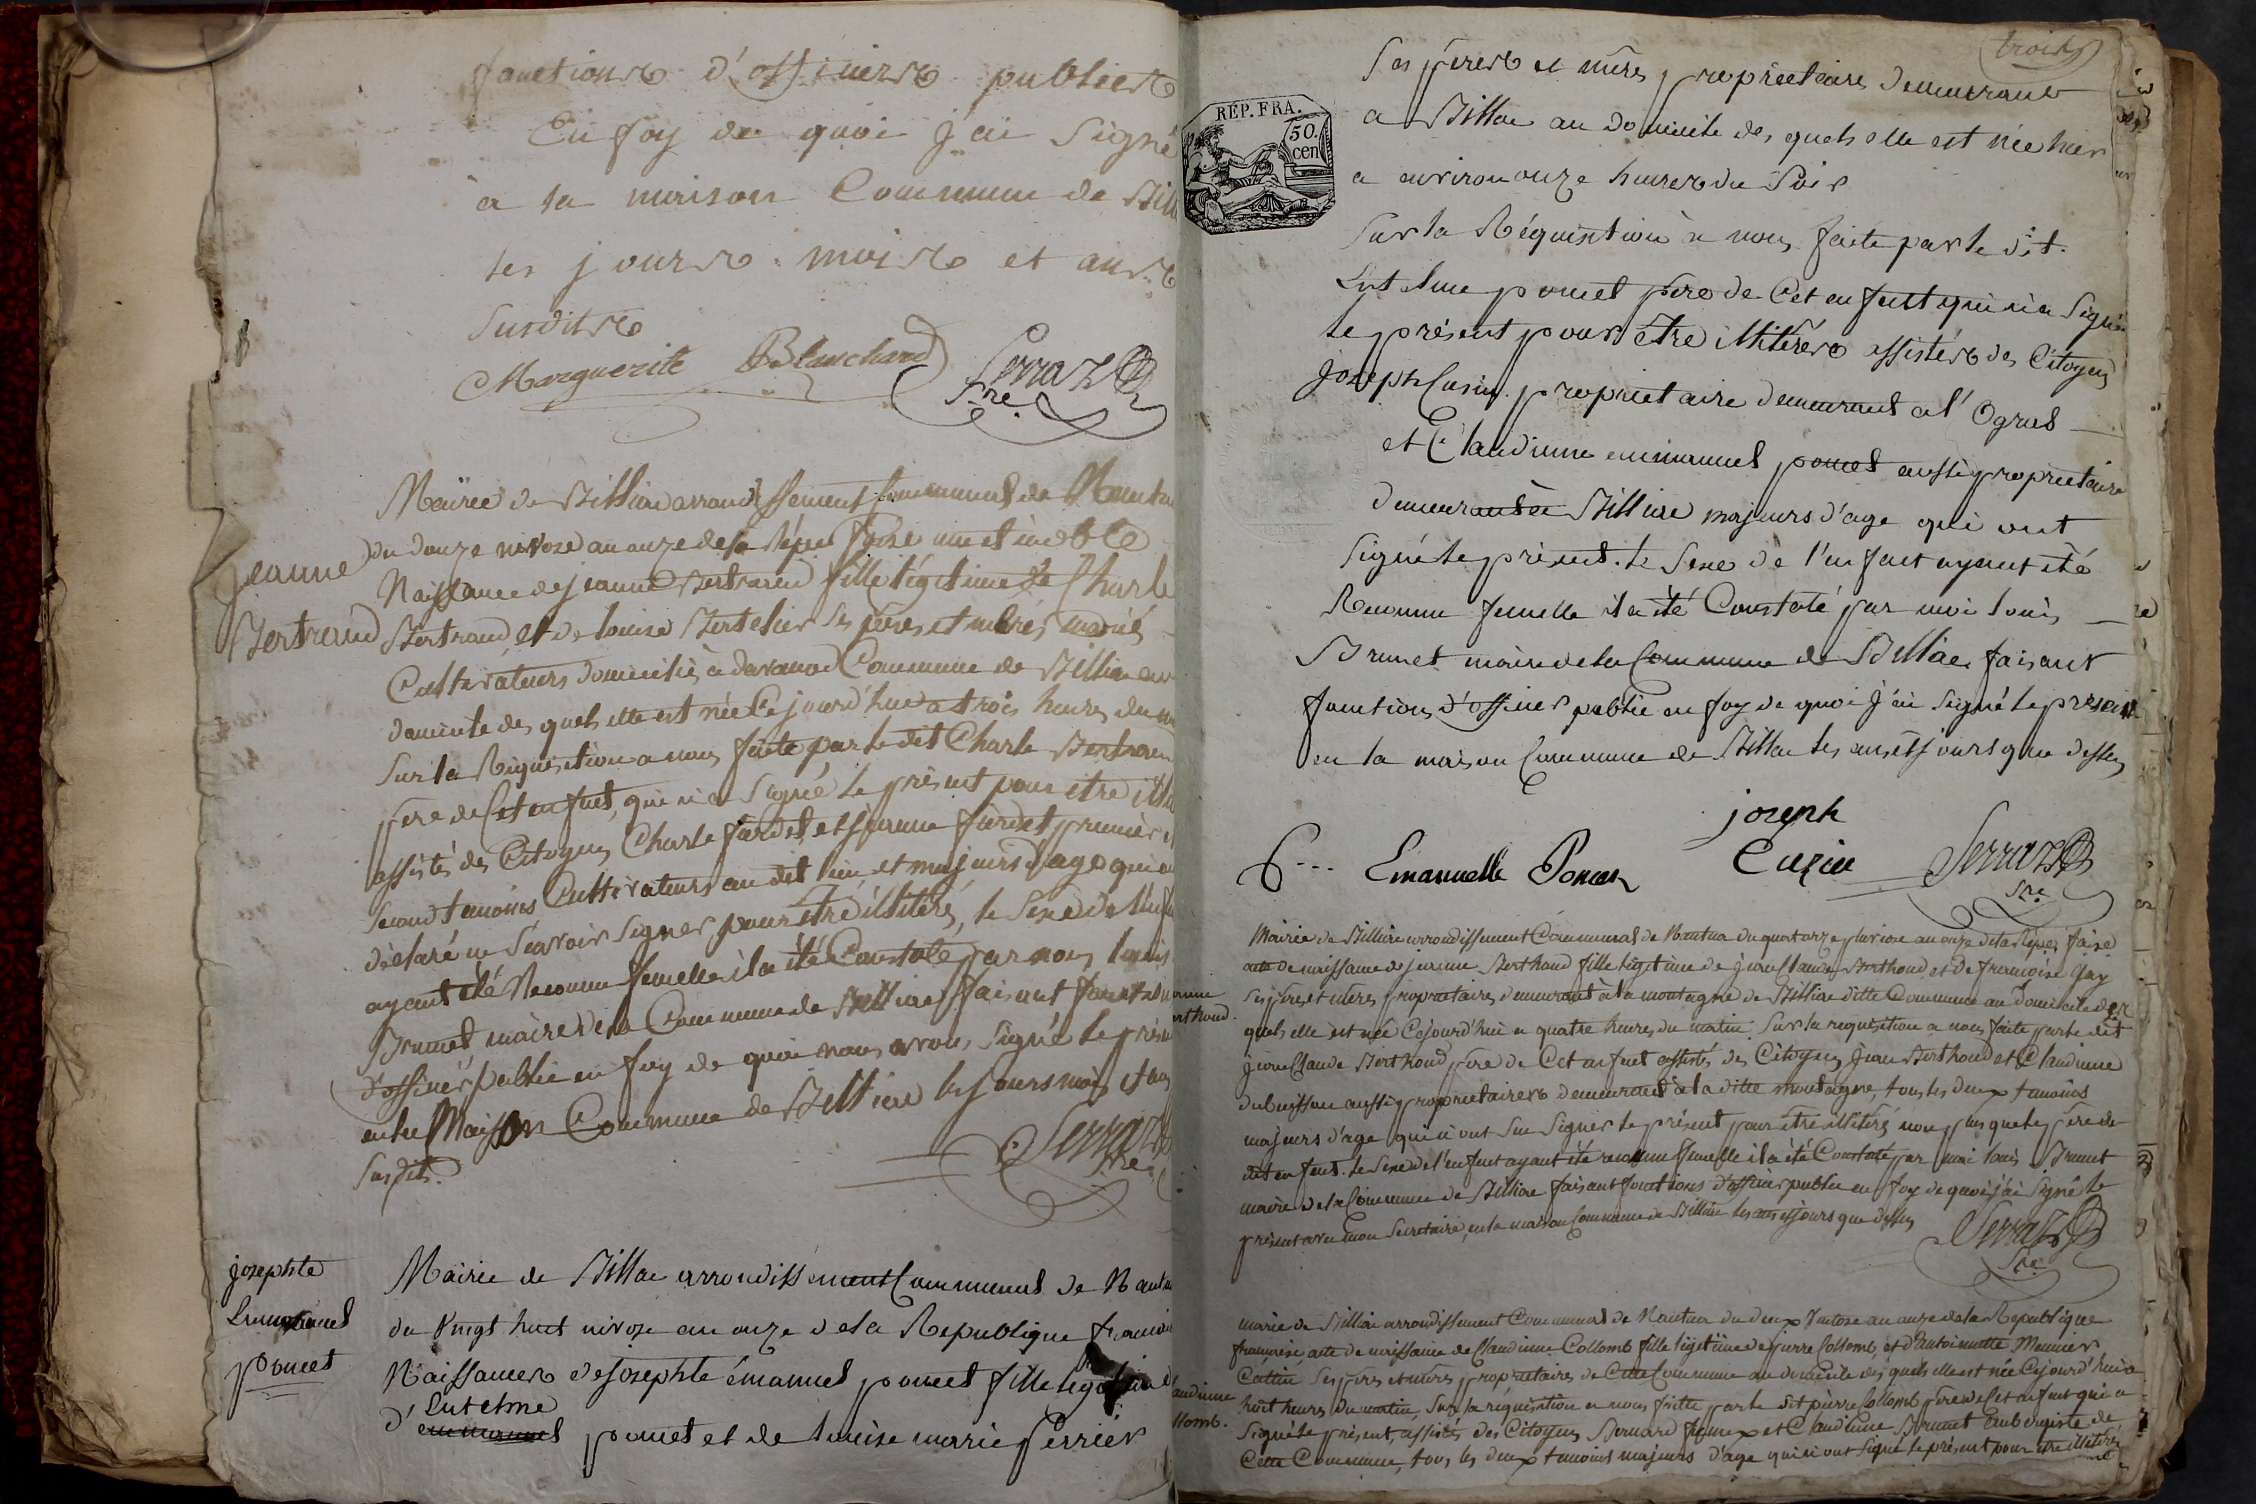 fonctions d'officiers publics
En foy de quoi j'ai Signé
à la maison Commune de Bill
les jours mois et ans
Susdits
Marguerite Blanchard Serraz
Sre.
Mairie de Billiad arrondissement Communal de Nantua
Jeanne du douze nivose an onze de la Répu. fçoise une et
Naissance de jeanne Bertrand fille légitime de Charle
Bertrand Bertrand et de louise Bertelier Ses pères et mères mariés
Cultivateurs domiciliés à Davanod Commune de Billiad au
domicile des quels elle est née Ce jourd'hui a trois heures du
Sur la Réquisition a nous faite par le dit Charle Bertrand
père de Cet enfant, qui n'a Signé le présent pour être
assistés des Citoyens Charle fardet, et jeanne fardet premier
Second témoins Cultivateurs au dit lieu et majeurs d'age qui
déclaré ne Scavoir Signer pour être illitérés, le Sexe de
ayant été Reconnu femelle il a été Constaté par nous louis
Brunet maire de la Commune de Billiad faisant
d'officier public en foy de quoi nous avons Signé le
en la Maison Commune de Billiad les jours mois et ans
Susdits. Serraz
Sre.
josephte Mairie de Billiad arrondissement Communal de Nantua
Emmanuel du vingt huit nivose an onze de la République
poncet Naissance de josephte émanuel poncet fille légitime
Entelme
d'emmanuel poncet et de louise marie perrier
trois
RÉP. FRA.
50.
cen
Ses pères et mères propriétaires demeurant
a Billiad au domicile des quels elle est née hier
a environ onze heures du Soir
Sur la Réquisition à nous faite par le dit.
Entelme poncet père de Cet enfant qui n'a Signé
le présent pour être illitérés assistés des Citoyens
joseph Cusin propriétaire demeurant a l'Ogrus
et Claudinne emmanuel poncet aussi propriétaire
demeurant à Billiad majeurs d'age qui ont
Signé le présent. le Sexe de l'enfant ayant été
Reconnu femelle il a été Constaté par moi louis
Brunet maire de la Commune de Billiad faisant
fonctions d'officier public en foy de quoi j'ai Signé le présent
en la maison Commune de Billiad les ans et jours que dessus
joseph
Emanuelle Poncet Cuzin Serraz
Sre.
Mairie de Billiad arrondissement Communal de Nantua du quatorze pluviose an onze de la Répu. faise
acte de naissance de jeanne Berthoud fille légitime de jean Claude Berthoud et de francoise Gay
Ses pères et mères propriétaires demeurant à la montagne de Billiad ditte Commune au Domicile des
quels elle est née Cejourd'hui a quatre heures du matin Sur la requisition a nous faite par le dit
jean Claude Berthoud père de Cet enfant assistés des Citoyens jean Berthoud et Claudinne
dubuisson aussi propriétaires demeurant à la ditte montagne, tous les deux témoins
majeurs d'age qui n'ont Su Signer le présent pour être illitérés non plus que le père du
dit enfant. le Sexe de l'enfant ayant été reconnu femelle il a été Constaté par moi louis Brunet
maire de la Commune de Billiad faisant fonctions d'officier public en foy de quoi j'ai Signé le
présent avec mon Secretaire, en la maison Commune de Billiad les ans et jours que dessus
Serraz
Sre.
marie de Billiad arrondissement Communal de Nantua du deux Ventose an onze de la République
françoise acte de naissance de Claudinne Collomb fille légitime de pierre Collomb, et d'antoinette Meunier
Cattin Ses pères et mères propriétaires de Cette Commune au domicile des quels elle est née Cejourd'hui a
huit heures du matin, Sur la réquisition a nous faitte par le dit pierre Collomb père de Cet enfant qui a
Signé le présent, assistés des Citoyens Bernard et Claudinne Brunet Aubergiste de
Cette Commune, tous les deux témoins majeurs d'age qui n'ont Signé le présent pour être illitérés